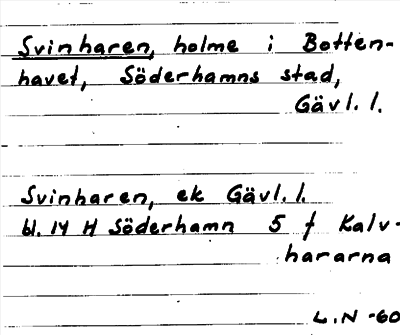 Svinharen, holme i Botten-
havet, Söderhamns stad,
Gävl. l.
Svinharen, ek Gävl. l.
bl. 14 H Söderhamn 5 f Kalv-
hararna
L.N -60